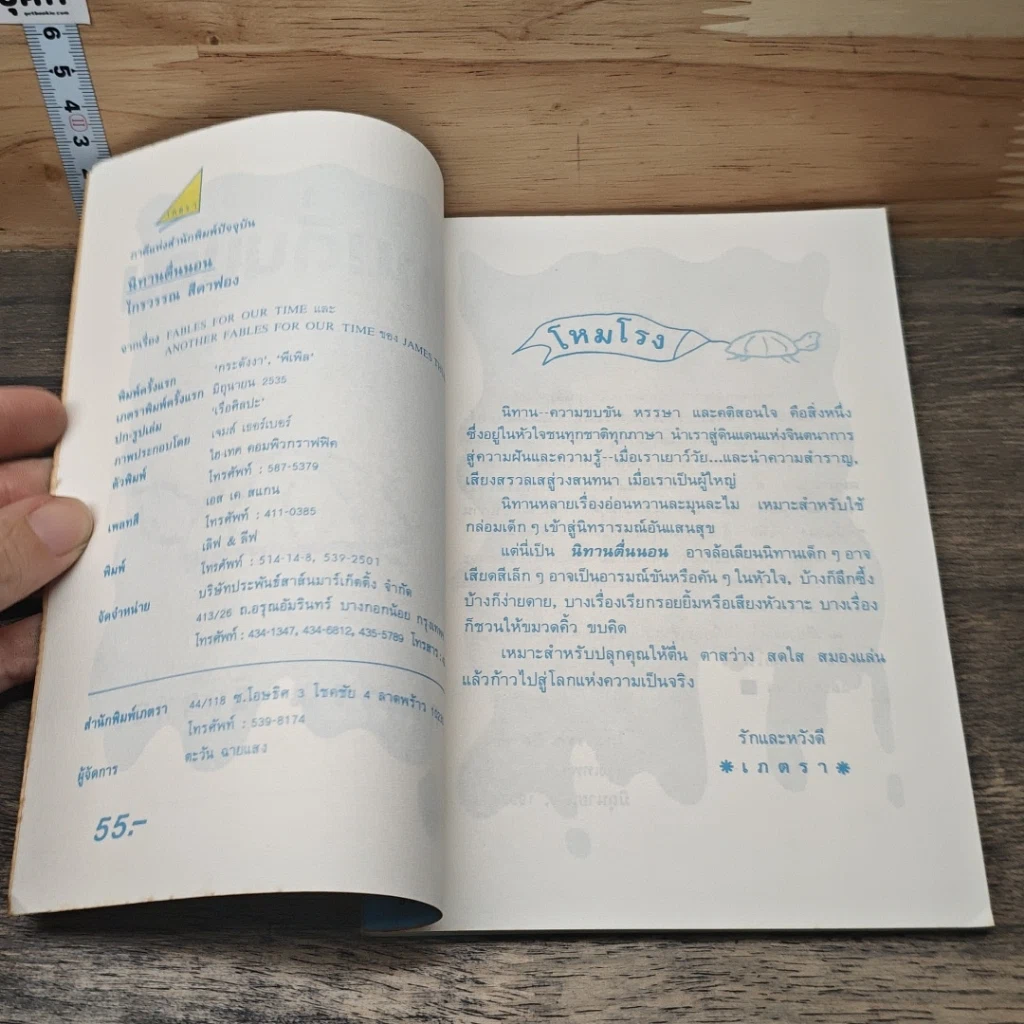 getbookie.com
6
5
4
3
เภตรา
ภาคีแห่งสำนักพิมพ์ปัจจุบัน
นิทานตื่นนอน
ไกรวรรณ สีดาฟอง
จากเรื่อง FABLES FOR OUR TIME และ
ANOTHER FABLES FOR OUR TIME ของ JAMES
พิมพ์ครั้งแรก 'กระดังงา', 'พีเพิล'
เภตราพิมพ์ครั้งแรก มิถุนายน 2535
ปก-รูปเล่ม 'เรือศิลปะ'
ภาพประกอบโดย เจมส์ เธอร์เบอร์
ตัวพิมพ์ ไฮ-เทค คอมพิวกราฟฟิค
โทรศัพท์ : 587-5379
เพลทสี เอส เค สแกน
โทรศัพท์ : 411-0385
พิมพ์ เลิฟ & ลีฟ
โทรศัพท์ : 514-14-8, 539-2501
จัดจำหน่าย บริษัทประพันธ์สาส์นมาร์เก็ตติ้ง จำกัด
413/26 ถ.อรุณอัมรินทร์ บางกอกน้อย
โทรศัพท์ : 434-1347, 434-6812, 435-5789 โทรสาร :
สำนักพิมพ์เภตรา 44/118 ซ.โอษธิศ 3 โชคชัย 4 ลาดพร้าว
โทรศัพท์ : 539-8174
ผู้จัดการ ตะวัน ฉายแสง
55.-
โหมโรง
นิทาน--ความขบขัน หรรษา และคติสอนใจ คือสิ่งหนึ่ง
ซึ่งอยู่ในหัวใจชนทุกชาติทุกภาษา นำเราสู่ดินแดนแห่งจินตนาการ
สู่ความฝันและความรู้--เมื่อเราเยาว์วัย...และนำความสำราญ,
เสียงสรวลเสสู่วงสนทนา เมื่อเราเป็นผู้ใหญ่
นิทานหลายเรื่องอ่อนหวานละมุนละไม เหมาะสำหรับใช้
กล่อมเด็ก ๆ เข้าสู่นิทรารมณ์อันแสนสุข
แต่นี่เป็น นิทานตื่นนอน อาจล้อเลียนนิทานเด็ก ๆ อาจ
เสียดสีเล็ก ๆ อาจเป็นอารมณ์ขันหรือคัน ๆ ในหัวใจ, บ้างก็ลึกซึ้ง
บ้างก็ง่ายดาย, บางเรื่องเรียกรอยยิ้มหรือเสียงหัวเราะ บางเรื่อง
ก็ชวนให้ขมวดคิ้ว ขบคิด
เหมาะสำหรับปลุกคุณให้ตื่น ตาสว่าง สดใส สมองแล่น
แล้วก้าวไปสู่โลกแห่งความเป็นจริง
รักและหวังดี
*เภตรา*